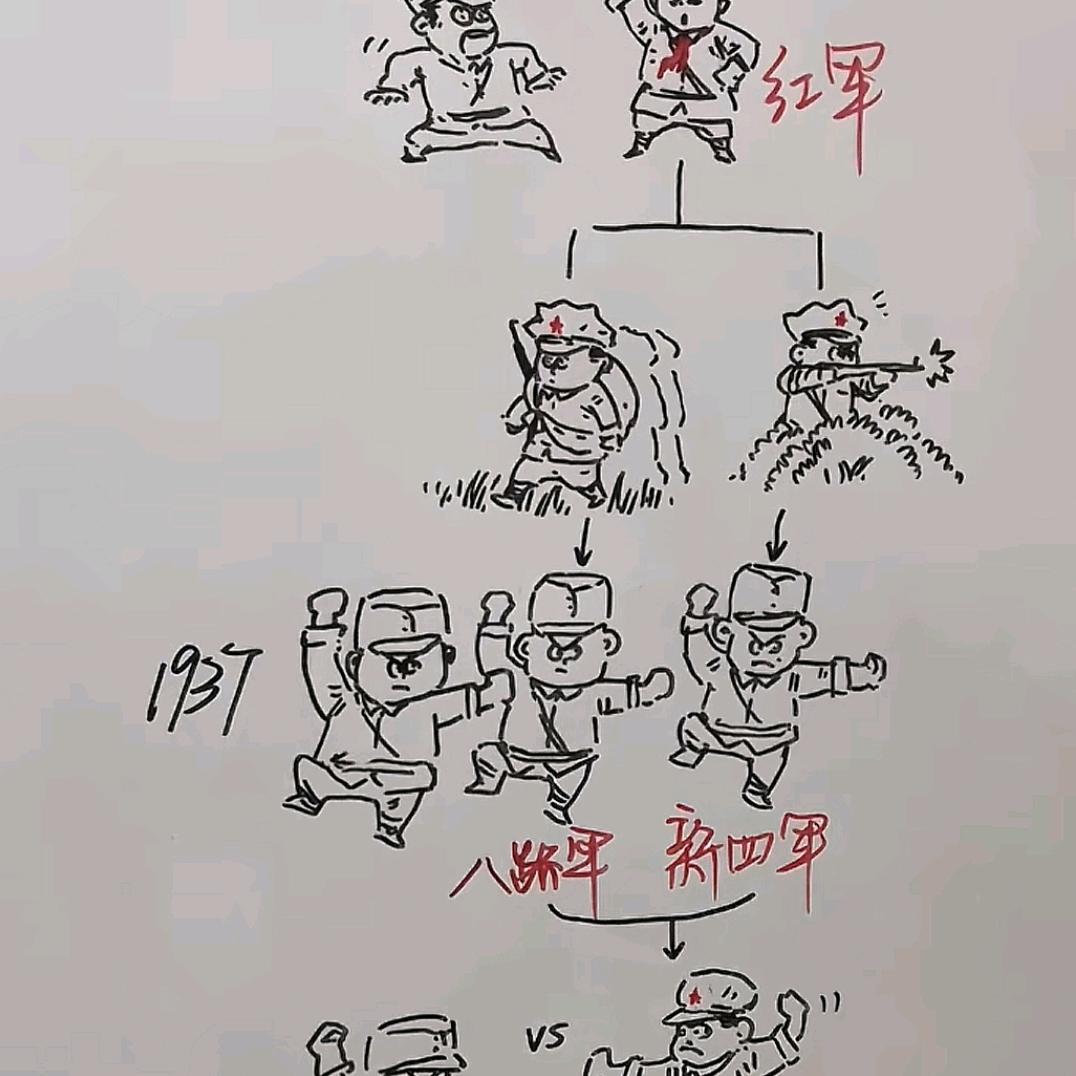 红军
1937
八路军
新四军
VS